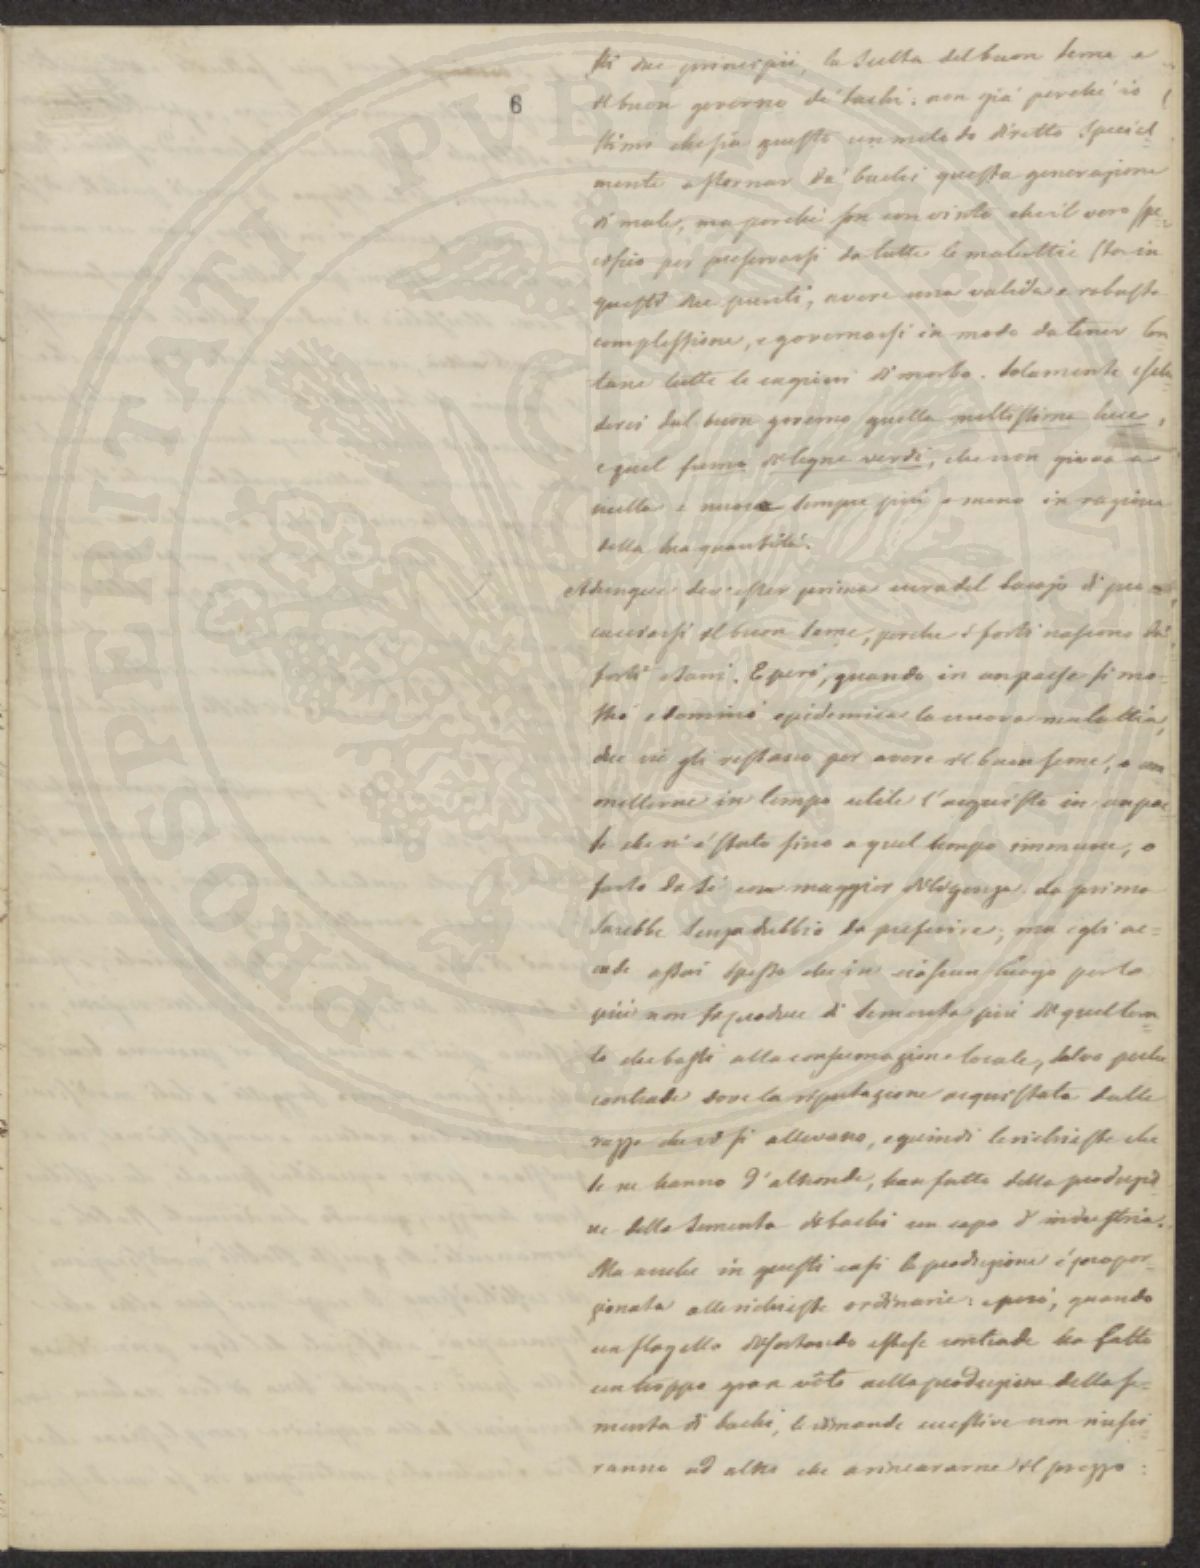 6
sti due principii, la scelta del buon seme e
il buon governo de' bachi: non già perchè io
stimo che sia questo un metodo diretto special
mente a stornar da' bachi questa generazione
di male, ma perchè son convinto che il vero spe-
cifico per preservarsi da tutte le malattie sta in
questi due punti, avere una valida e robusta
complessione, e governarsi in modo da tener lon
tane tutte le cagioni di morbo. Solamente esclu-
derei dal buon governo quella moltissima luce,
e quel fumo di legne verdi, che non giova a
nulla e nuoce sempre più o meno in ragione
della sua quantità.
Adunque dev'esser prima cura del bacajo di pro-
cacciarsi il buon seme, perchè i forti nascono da'
forti stami. E però, quando in un paese si mo-
strò e dominò epidemica la nuova malattia,
due vie gli restano per avere il buon seme, o
metterne in tempo utile l'acquisto in un pae
se che n'è stato fino a quel tempo immune, o
farlo da sè con maggior diligenza. La prima
sarebbe senza dubbio da preferire; ma egli ac-
cade assai spesso che in ciascun luogo per lo
più non si produce di semenza più di quel tan-
to che basti alla consumazione locale, salvo poche
contrade dove la riputazione acquistata dalle
razze che vi si allevano, e quindi le richieste che
se ne hanno d'altronde, han fatto della produzio
ne della sementa di bachi un capo d'industria.
Ma anche in questi casi la produzione è propor-
zionata alle richieste ordinarie: e però, quando
un flagello disertando estese contrade ha fatto
un troppo gran vôto nella produzione della se-
menta di bachi, le dimande eccessive non riusci
ranno ad altro che a rincararne il prezzo:
PROSPERITATI PVBLICAE